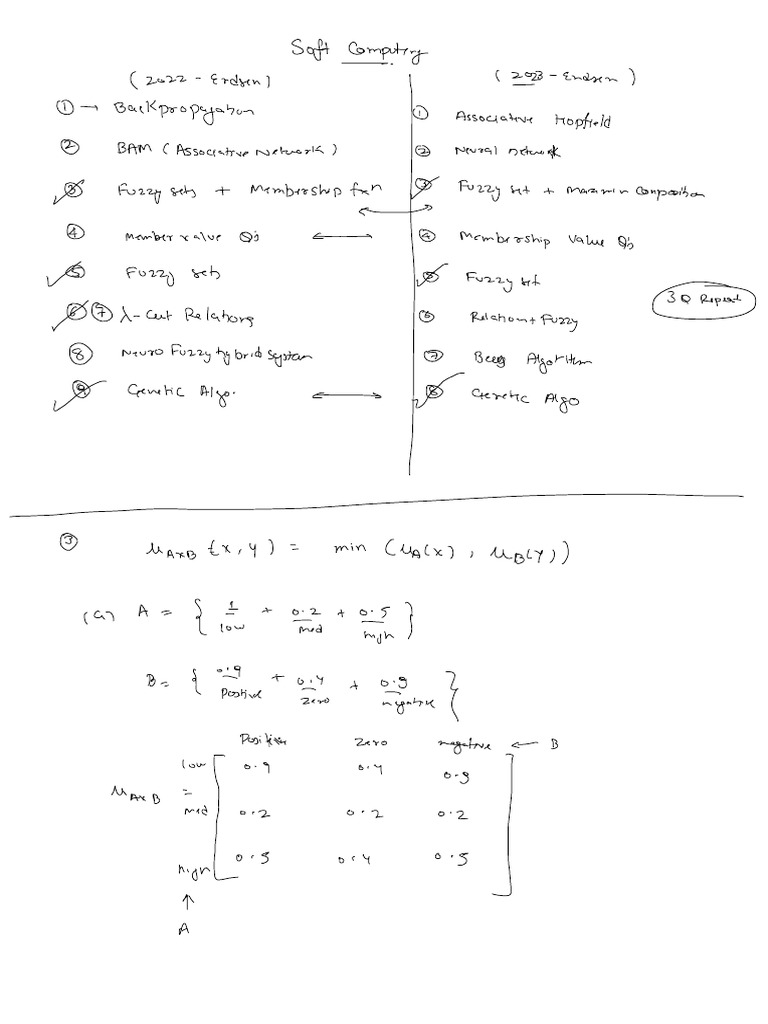 Soft Computing
(2022 - Endsem)
① → Backpropagation
② BAM (Associative Network)
③ Fuzzy sets + Membership fxn
④ Member value Q's
⑤ Fuzzy sets
⑥ ⑦ λ-cut Relations
⑧ Neuro Fuzzy hybrid system
⑨ Genetic Algo.
(2023 - Endsem)
① Associative Hopfield
② Neural network
③ Fuzzy set + Maxmin Composition
④ Membership Value Q's
⑤ Fuzzy set
⑥ Relation + Fuzzy
⑦ Bees Algorithm
⑧ Genetic Algo
3 Q Repeat
③ μ_AxB (x, y) = min (μ_A(x), μ_B(y))
(a) A = { 1/low + 0.2/med + 0.5/high }
B = { 0.9/Positive + 0.4/zero + 0.9/negative }
Positive zero negative ← B
low 0.9 0.4 0.9
μ_AxB =
med 0.2 0.2 0.2
high 0.5 0.4 0.5
↑
A